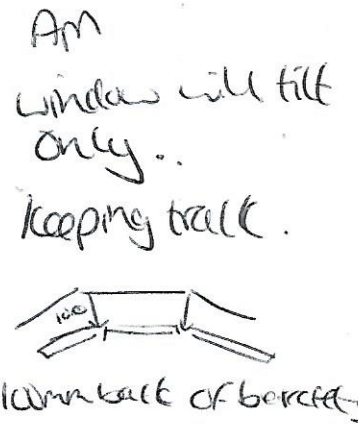 AM
window will tilt
only..
keeping track.
100
100mm back of